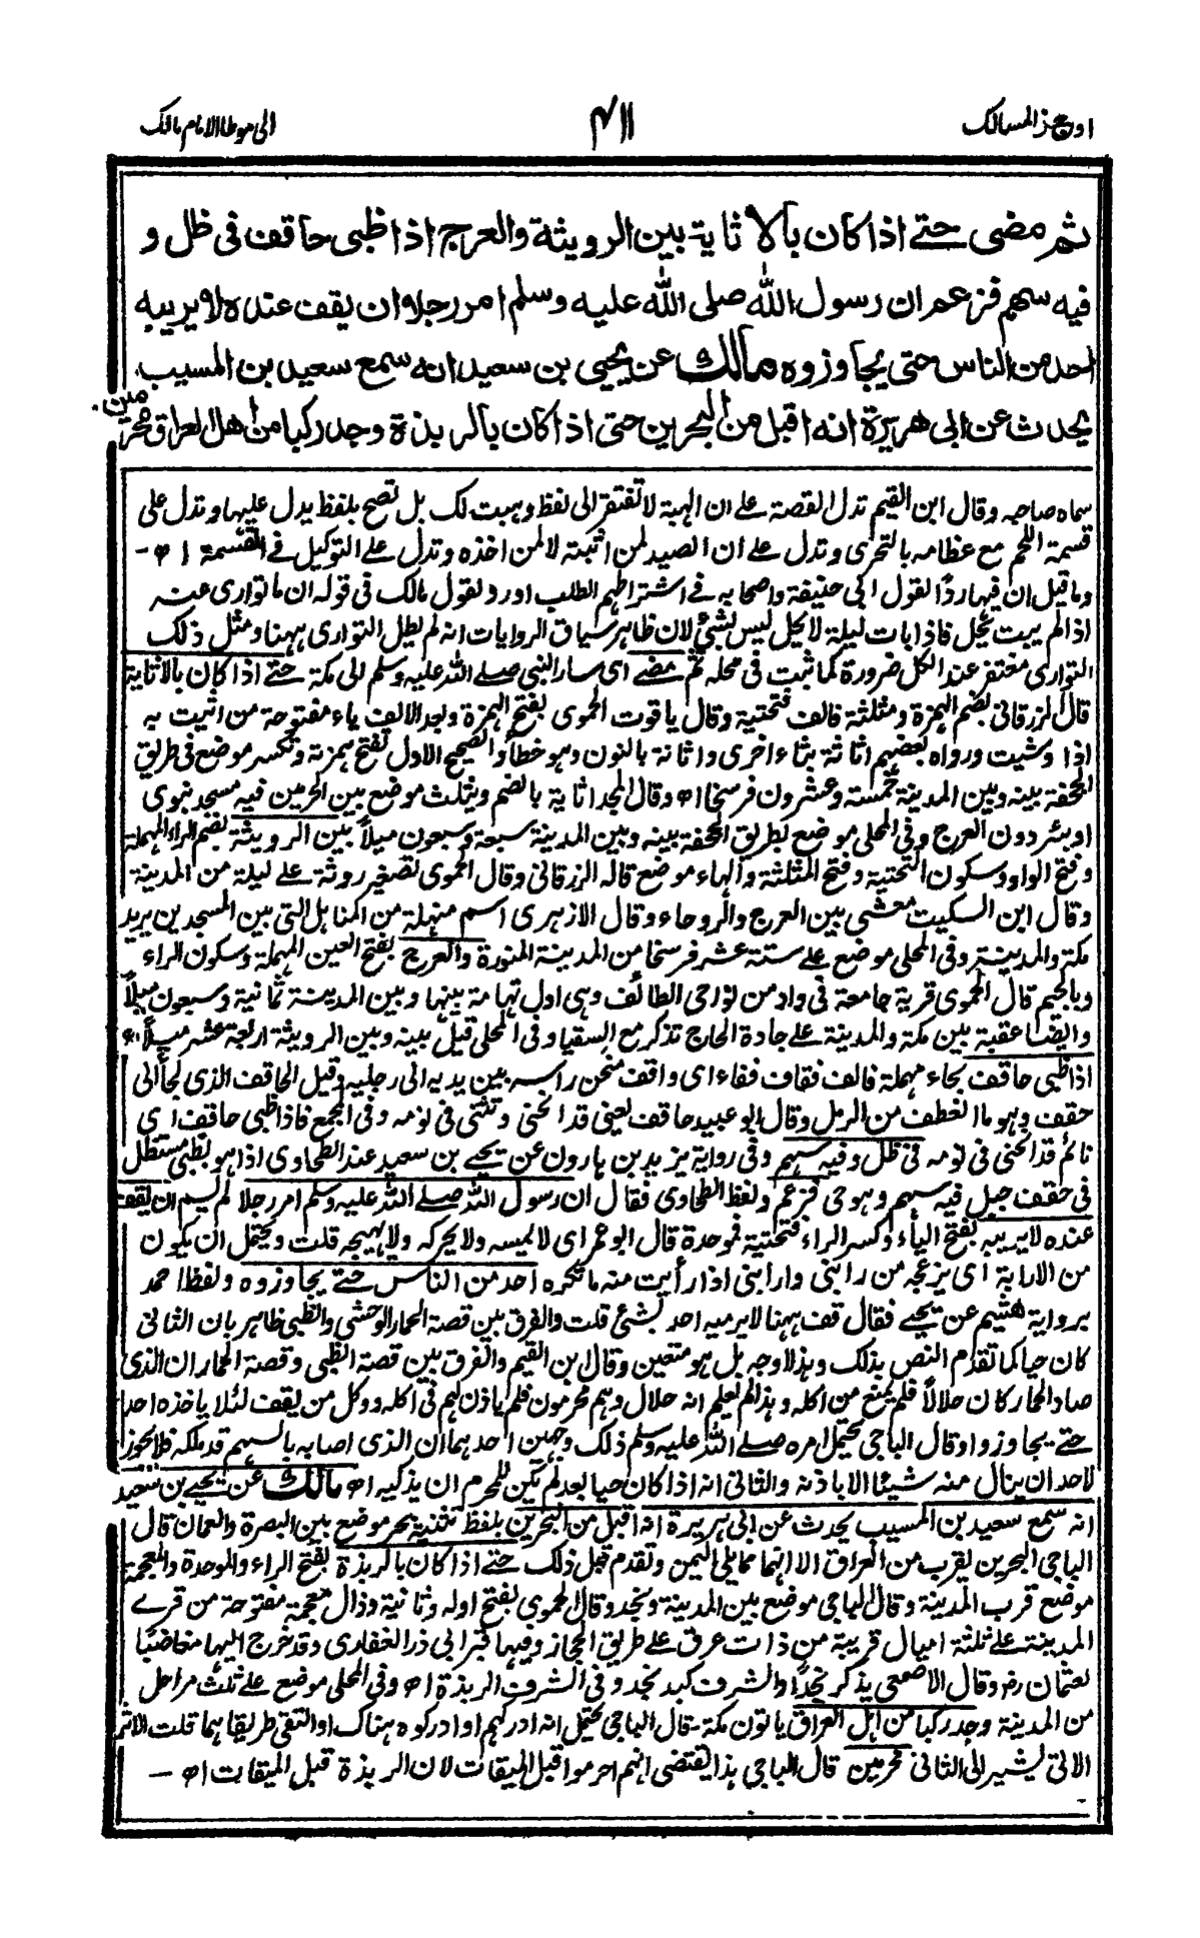 اوجز المسالك
٤١١
الى موطا الامام مالك
ثم مضى حتے اذا كان بالاثاية بين الرويثة والعرج اذا ظبى حاقف فى ظل و
فيه سهم فزعم ان رسول الله صلى الله عليه وسلم امر رجلا ان يقف عنده لا يريبه
احد من الناس حتى يجاوزوه مالك عن يحيى بن سعيد انه سمع سعيد بن المسيب
يحدث عن ابى هريرة انه اقبل من البحرين حتى اذا كان بالربذة وجد ركبا من اهل العراق محر
مين
سماه صاحبه وقال ابن القيم تدل القصة علے ان الهبة لا تفتقر الى لفظ وهبت لك بل تصح بلفظ يدل عليها وتدل على
قسمة اللحم مع عظامه بالتحرى وتدل علے ان الصيد لمن اثبته لا لمن اخذه وتدل علے التوكيل فے القسمة اھ -
وما قيل ان فيها ردا لقول ابى حنيفة واصحابه فے اشتراطهم الطلب او رد لقول مالك فى قوله ان ما توارى عنه
اذا لم يبت يحل فاذا بات ليلة لا يحل ليس بشئ لان ظاهر سياق الروايات انه لم يطل التوارى ههنا ومثل ذلك
التوارى مغتفر عند الكل ضرورة كما ثبت فى محله ثم مضے اى سار النبي صلے الله عليه وسلم الى مكة حتے اذا كان بالاثاية
قال الزرقانى بضم الهمزة ومثلثة فالف فتحتية وقال ياقوت الحموى بفتح الهمزة وبعد الالف ياء مفتوحة من اثيت به
اذا وشيت ورواه بعضهم اثاثة بثاء اخرى واثانة بالنون وهو خطأ والصحيح الاول تفتح همزته وتكسر موضع فى طريق
الجحفة بينه وبين المدينة خمسة وعشرون فرسخا اھ وقال المجد اثاية بالضم ويثلث موضع بين الحرمين فيه مسجد نبوى
او بئر دون العرج وفى المحلى موضع بطريق الجحفة بينه وبين المدينة سبعة وسبعون ميلاً بين الرويثة بضم الراء المهملة
وفتح الواو وسكون التحتية وفتح المثلثة والهاء موضع قاله الزرقانى وقال الحموى تصغير روثة علے ليلة من المدينة
وقال ابن السكيت معشى بين العرج والروحاء وقال الازهرى اسم منهلة من المناهل التى بين المسجدين يريد
مكة والمدينة وفى المحلى موضع علے ستة عشر فرسخا من المدينة المنورة والعرج بفتح العين المهملة وسكون الراء
وبالجيم قال الحموى قرية جامعة فى واد من نواحى الطائف وهى اول تهامة بينها وبين المدينة ثمانية وسبعون ميلاً
وايضا عقبة بين مكة والمدينة علے جادة الحاج تذكر مع السقيا وفى المحلى قيل بينه وبين الرويثة اربعة عشر ميلاً اھ
اذا ظبى حاقف بحاء مهملة فالف فقاف ففاء اى واقف منحن راسه بين يديه الى رجليه وقيل الحاقف الذى لجأ الى
حقف وهو ما انعطف من الرمل وقال ابو عبيد حاقف يعنى قد انحنى وتثنى فى نومه وفى المجمع فاذا ظبى حاقف اى
نائم قد انحنى فى نومه فى ظل وفيه سهم وفى رواية يزيد بن هارون عن يحيے بن سعيد عند الطحاوى اذا هو بظبى مستظل
فى حقف جبل فيه سهم وهو حى فزعم ولفظ الطحاوى فقال ان رسول الله صلے الله عليه وسلم امر رجلا لم يسم ان يقف
عنده لا يريبه بفتح الياء وكسر الراء فتحتية فموحدة قال ابو عمر اى لا يمسه ولا يحركه ولا يهيجه قلت ويحتمل ان يكون
من الارابة اى يزعجه من رابنى وارابنى اذا رأيت منه ما تكره احد من الناس حتے يجاوزوه ولفظ احمد
برواية هشيم عن يحيے فقال قف ههنا لا يرميه احد بشئ قلت والفرق بين قصة الحمار الوحشى والظبى ظاهر بان الثانى
كان حيا كما تقدم النص بذلك وهذا اوجه بل هو متعين وقال ابن القيم والفرق بين قصة الظبى وقصة الحمار ان الذى
صاد الحمار كان حلالاً فلم يمنع من اكله وهذا لم يعلم انه حلال وهم محرمون فلم ياذن لهم فى اكله ووكل من يقف لئلا ياخذه احد
حتے يجاوزوا وقال الباجى يحتمل امره صلے الله عليه وسلم ذلك وجهين احدهما ان الذى اصابه بالسهم قد ملكه فلا يجوز
لاحد ان ينال منه شيئا الا باذنه والثانى انه اذا كان حيا بعد لم يكن للمحرم ان يذكيه اھ مالك عن يحيے بن سعيد
انه سمع سعيد بن المسيب يحدث عن ابى هريرة انه اقبل من البحرين بلفظ تثنية بحر موضع بين البصرة والعمان قال
الباجى البحرين بقرب من العراق الا انها مما يلى اليمن وتقدم قبل ذلك حتے اذا كان بالربذة بفتح الراء والموحدة والمعجمة
موضع قرب المدينة وقال الباجى موضع بين المدينة ونجد وقال الحموى بفتح اوله وثانية وذال معجمة مفتوحة من قرے
المدينة علے ثلثة اميال قريبة من ذات عرق علے طريق الحجاز وفيها قبر ابى ذر الغفارى وقد خرج اليها مغاضبا
لعثمان رضـ وقال الاصمعى يذكر نجداً والشرف كبد نجد وفى الشرف الربذة اھ وفى المحلى موضع علے ثلث مراحل
من المدينة وجد ركبا من اهل العراق ياتون مكة - قال الباجى يحتمل انه ادركهم او ادركوه هناك او التقى طريقاهما قلت الاثر
الاتى يشير الى الثانى محرمين قال الباجى هذا يقتضى انهم احرموا قبل الميقات لان الربذة قبل الميقات اھ —